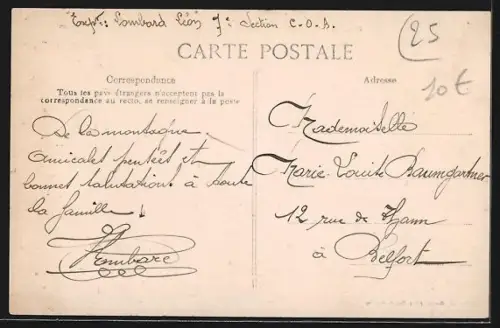 Expr: Lombard Léon 7e Section C.O.A.
25
CARTE POSTALE
10€
Correspondance
Tous les pays étrangers n'acceptent pas la
correspondance au recto, se renseigner à la poste
De la montagne.
Amicales pensées et
bonnes salutations à toute
la famille
Lombard
Adresse
Mademoiselle
Marie-Louise Baumgartner
12 rue de Thann
à Belfort